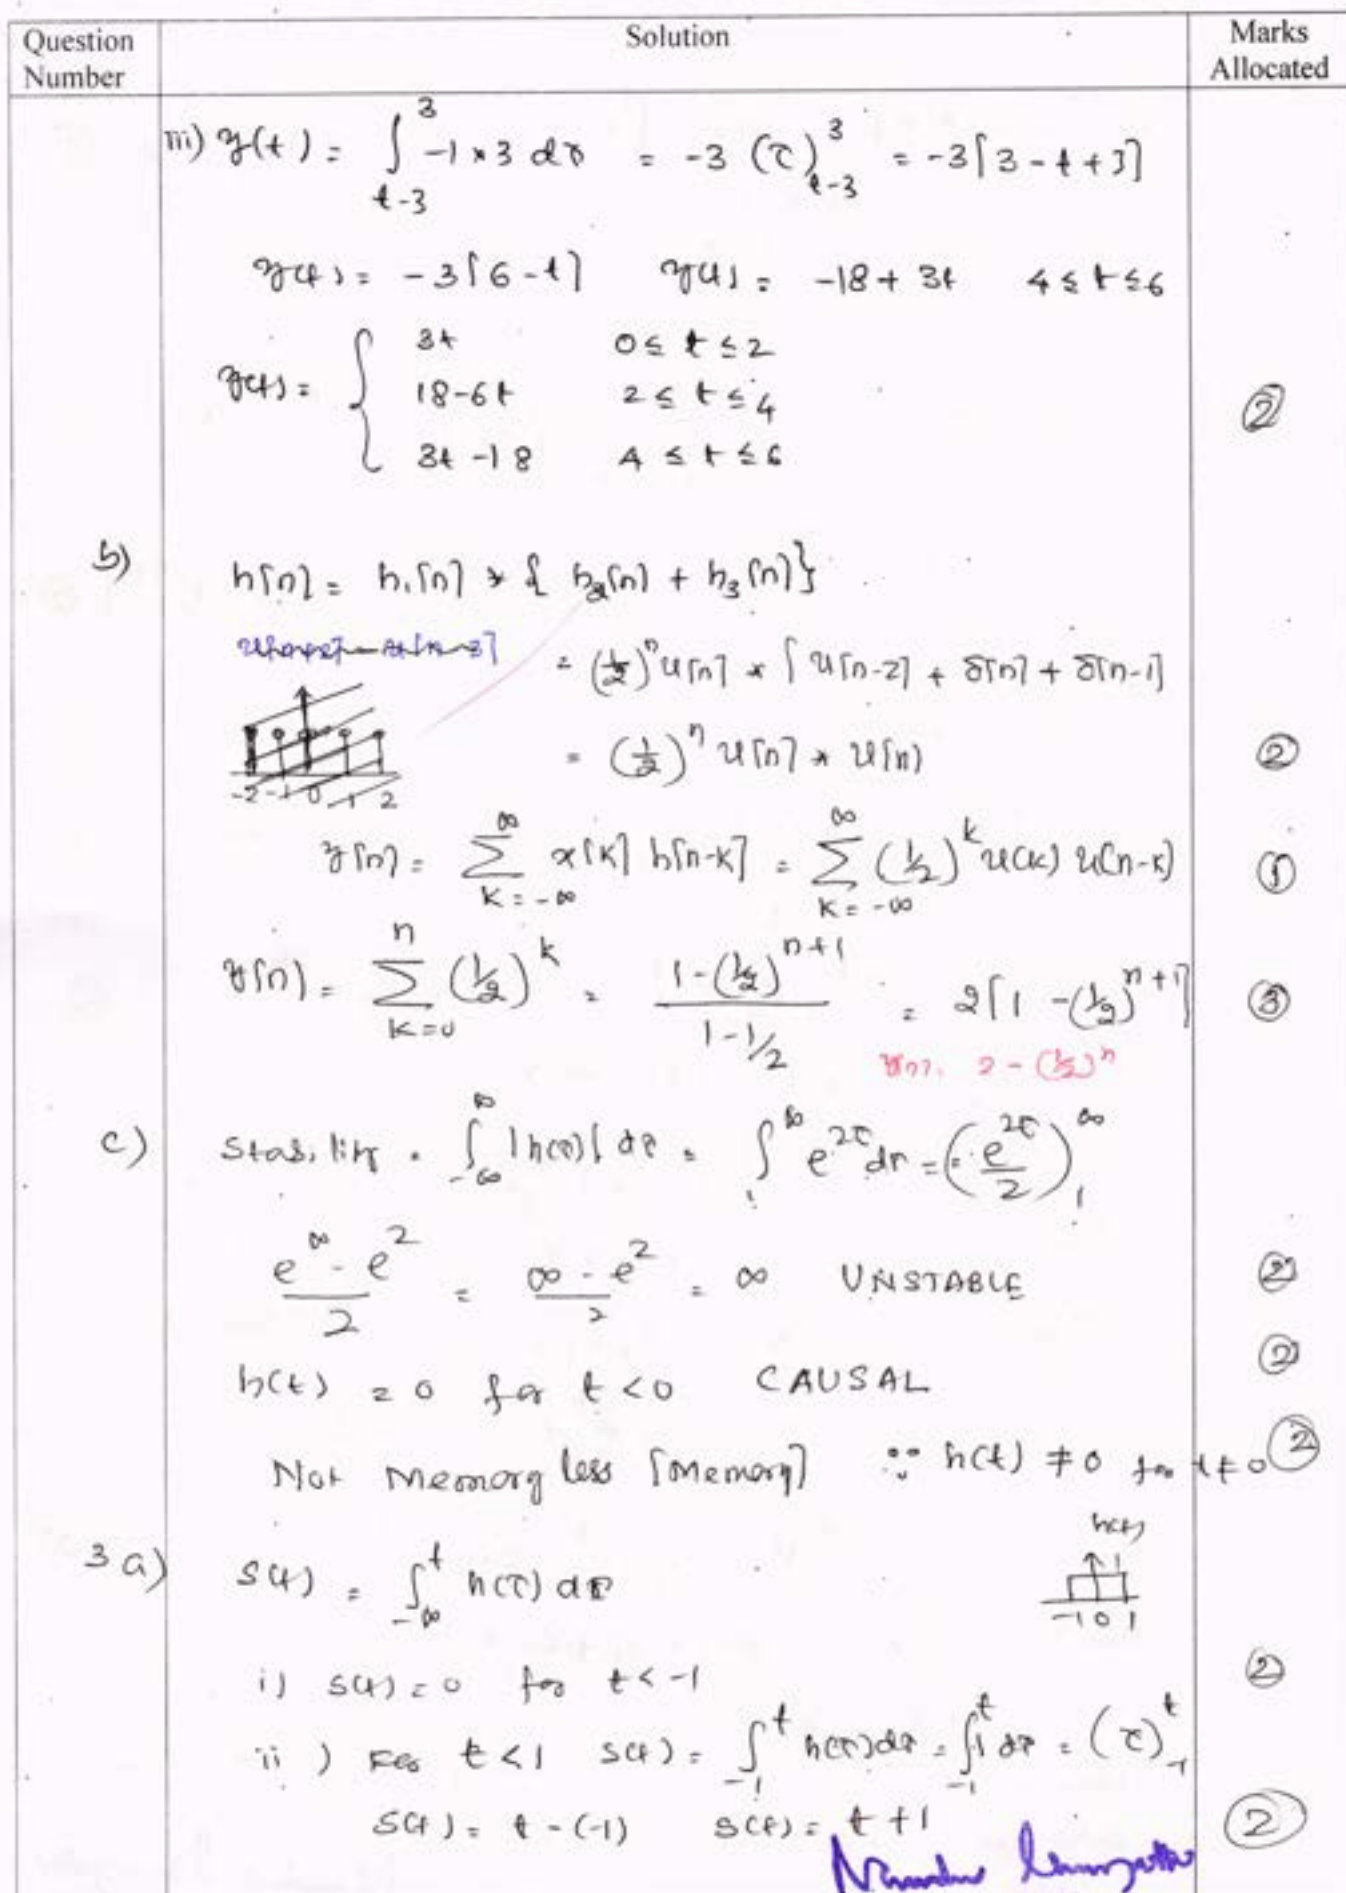 Question Number
Solution
Marks Allocated
iii) y(t) = ∫_{t-3}^{3} -1 × 3 dτ = -3 (τ)_{t-3}^{3} = -3[3 - t + 3]
y(t) = -3[6 - t] y(t) = -18 + 3t 4 ≤ t ≤ 6
y(t) = { 3t 0 ≤ t ≤ 2
18-6t 2 ≤ t ≤ 4
3t-18 4 ≤ t ≤ 6
②
b) h[n] = h₁[n] * { h₂[n] + h₃[n] }
= (1/2)^n u[n] * [ u[n-2] + δ[n] + δ[n-1]
= (1/2)^n u[n] * u[n] ②
-2 -1 0 1 2
y[n] = Σ_{k=-∞}^{∞} x[k] h[n-k] = Σ_{k=-∞}^{∞} (1/2)^k u(k) u(n-k) ①
y[n] = Σ_{k=0}^{n} (1/2)^k = (1-(1/2)^{n+1})/(1-1/2) = 2[1 - (1/2)^{n+1}] ③
y[n] = 2 - (1/2)^n
c) Stability. ∫_{-∞}^{∞} |h(τ)| dτ = ∫_{1}^{∞} e^{2τ} dτ = (e^{2τ}/2)_{1}^{∞}
(e^∞ - e²)/2 = (∞ - e²)/2 = ∞ UNSTABLE ②
h(t) = 0 for t < 0 CAUSAL ②
Not Memory less [Memory] ∵ h(t) ≠ 0 for t ≠ 0 ②
h(t)
1
-1 0 1
3 a) s(t) = ∫_{-∞}^{t} h(τ) dτ
i) s(t) = 0 for t < -1 ②
ii) For t < 1 s(t) = ∫_{-1}^{t} h(τ) dτ = ∫_{-1}^{t} 1 dτ = (τ)_{-1}^{t}
s(t) = t - (-1) s(t) = t + 1 ②